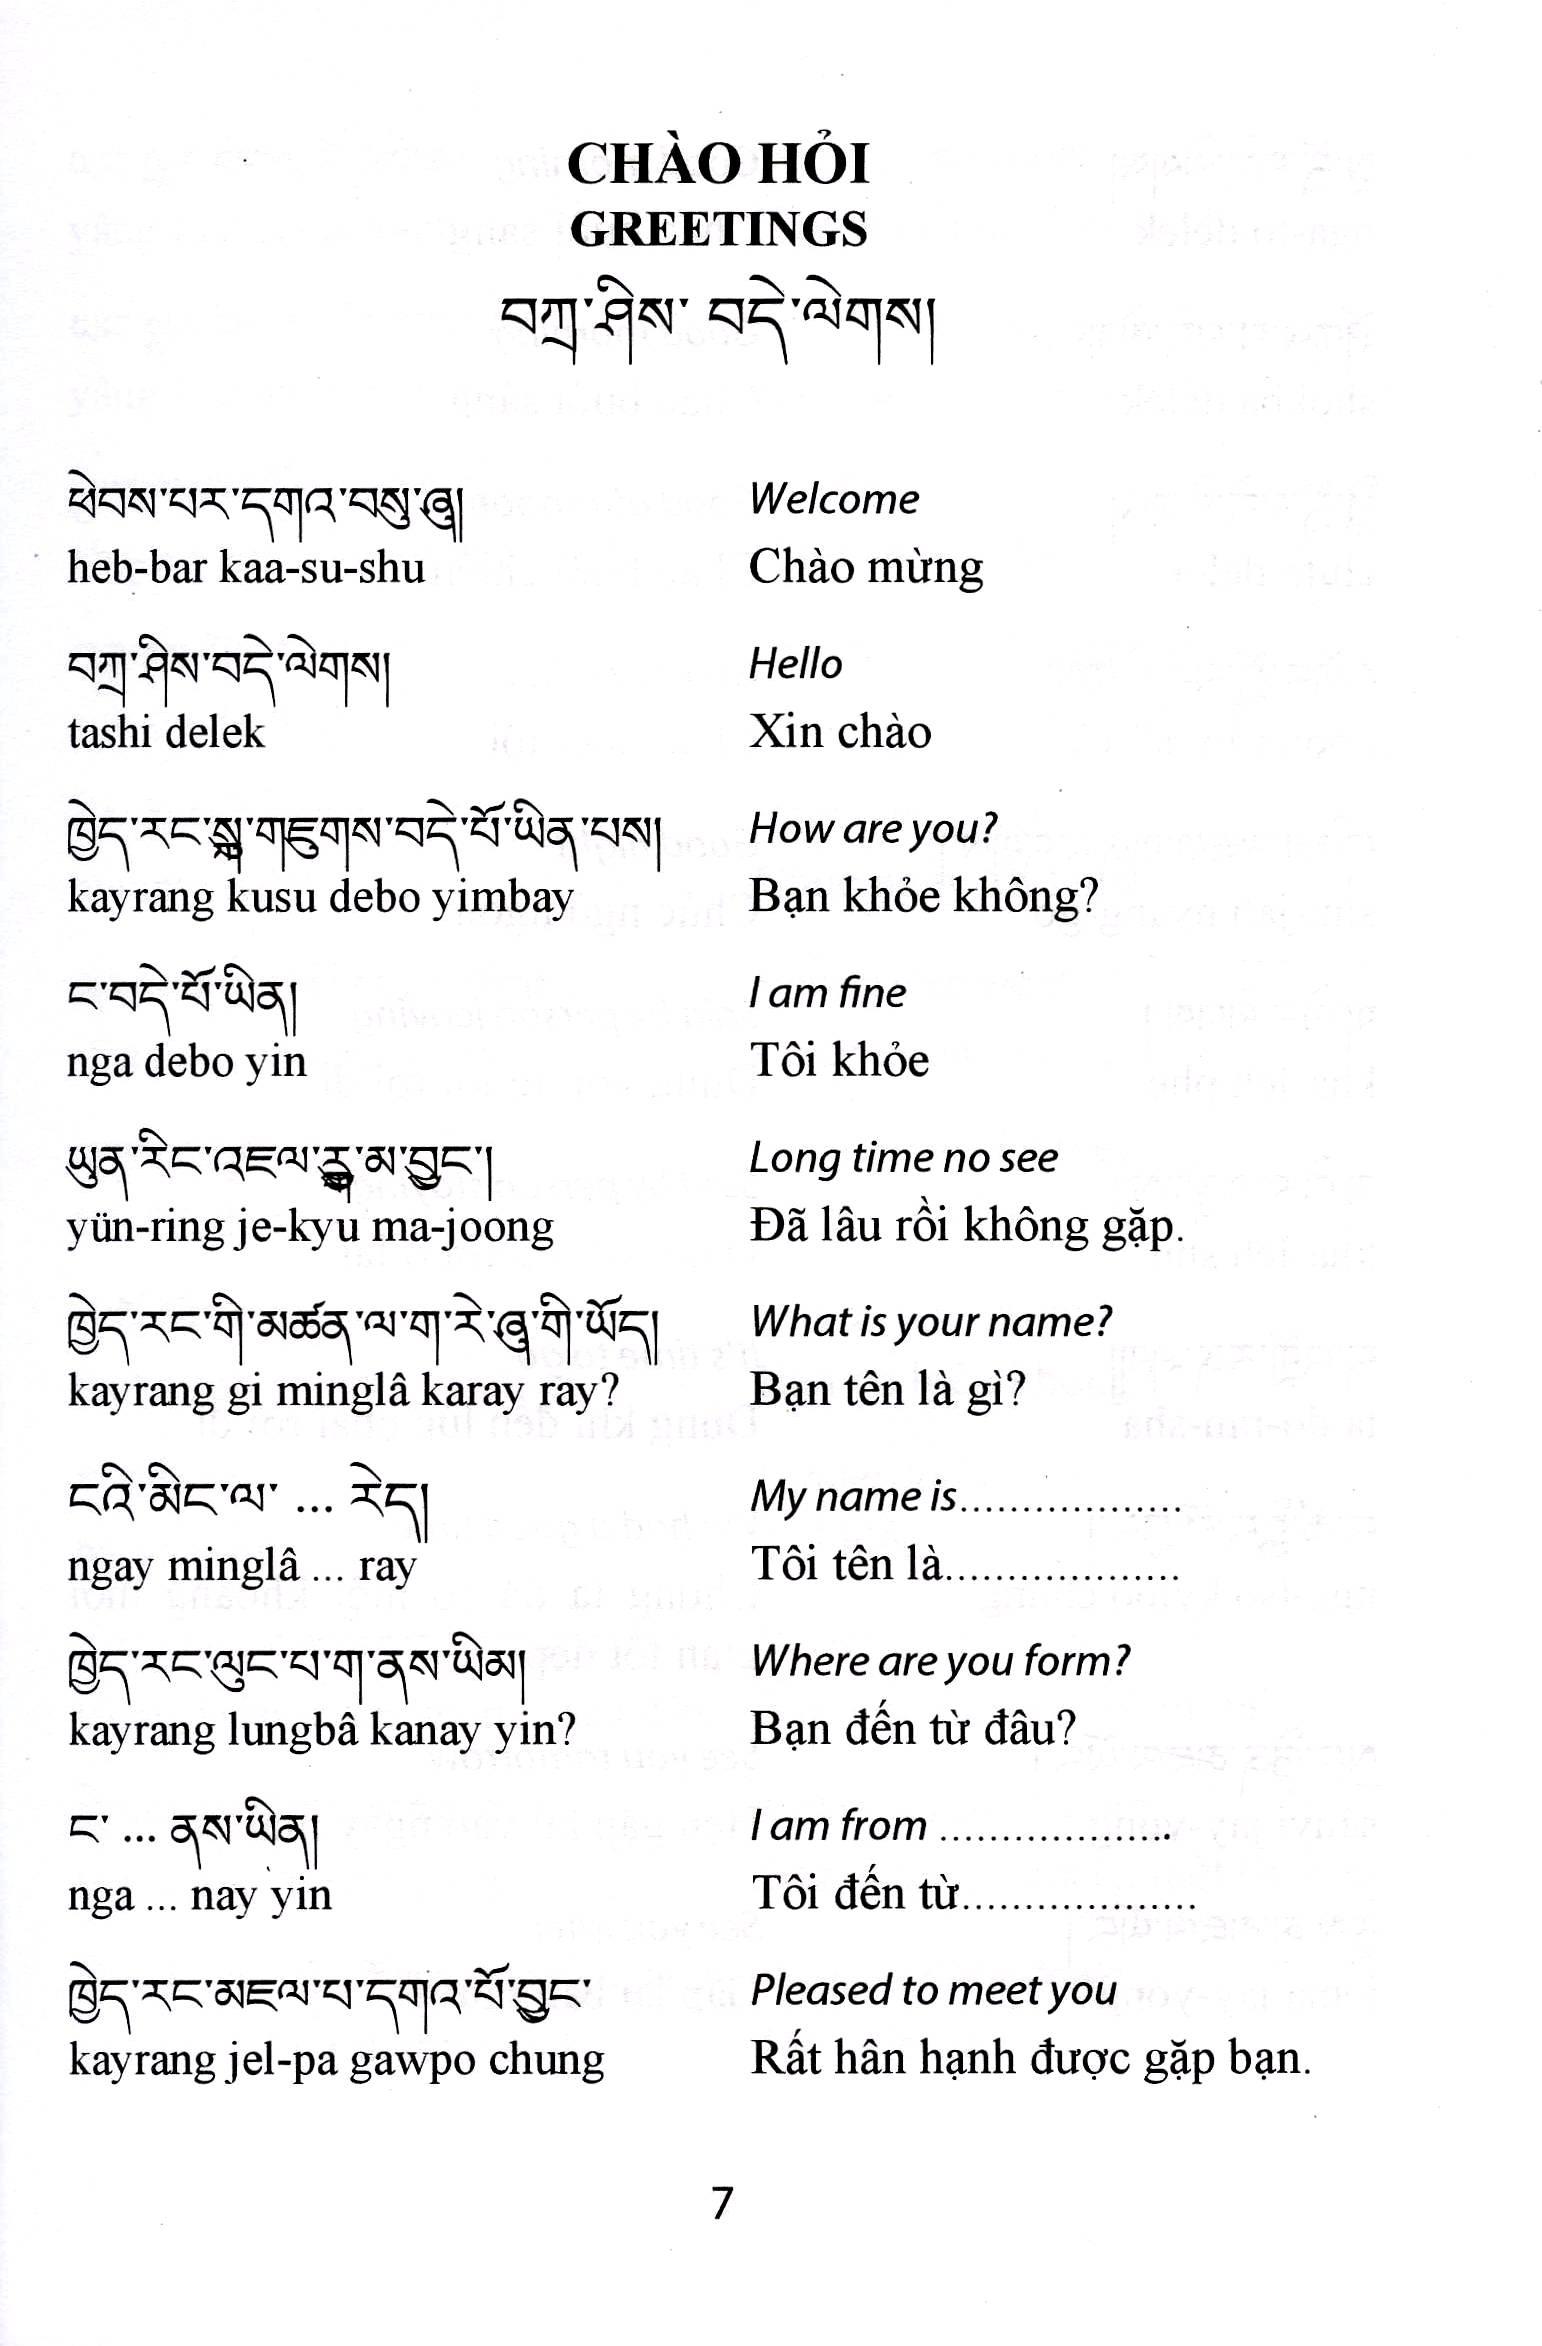 CHÀO HỎI
GREETINGS
བཀྲ་ཤིས་ བདེ་ལེགས།
ཕེབས་པར་དགའ་བསུ་ཞུ།
Welcome
heb-bar kaa-su-shu
Chào mừng
བཀྲ་ཤིས་བདེ་ལེགས།
Hello
tashi delek
Xin chào
ཁྱེད་རང་སྐུ་གཟུགས་བདེ་པོ་ཡིན་པས།
How are you?
kayrang kusu debo yimbay
Bạn khỏe không?
ང་བདེ་པོ་ཡིན།
I am fine
nga debo yin
Tôi khỏe
ཡུན་རིང་འཇལ་རྒྱུ་མ་བྱུང་།
Long time no see
yün-ring je-kyu ma-joong
Đã lâu rồi không gặp.
ཁྱེད་རང་གི་མཚན་ལ་ག་རེ་ཞུ་གི་ཡོད།
What is your name?
kayrang gi minglâ karay ray?
Bạn tên là gì?
ངའི་མིང་ལ་ ... རེད།
My name is..................
ngay minglâ ... ray
Tôi tên là...................
ཁྱེད་རང་ལུང་པ་ག་ནས་ཡིམ།
Where are you form?
kayrang lungbâ kanay yin?
Bạn đến từ đâu?
ང་ ... ནས་ཡིན།
I am from ...................
nga ... nay yin
Tôi đến từ...................
ཁྱེད་རང་མཇལ་པ་དགའ་པོ་བྱུང་
Pleased to meet you
kayrang jel-pa gawpo chung
Rất hân hạnh được gặp bạn.
7